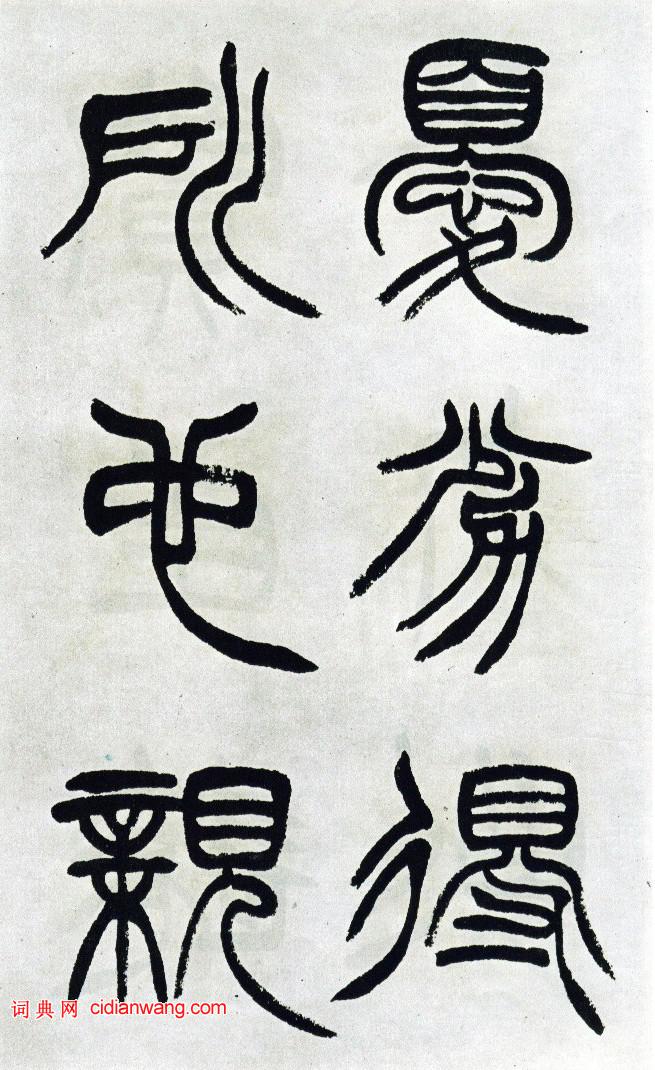 憂得
所也親
词典网 cidianwang.com